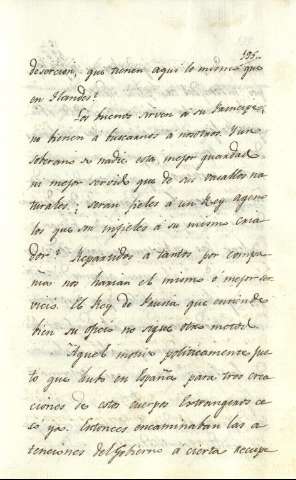 195.
desercion, que tienen aqui lo mismo que
en Flandes?
Los buenos sirven á su Principe,
no vienen á buscarnos á nosotros. Y un
soberano de nadie esta mejor guardado
ni mejor servido que de sus vasallos na
turales; seran fieles á un Rey ageno
los que son infieles á su mismo cria
dor? Repartidos á tantos por compa
ñias nos harian el mismo ó mejor ser
vicio. El Rey de Prusia que entiende
bien su oficio no sigue otro metodo.
Aquel motivo politicamente jus
to que hubo en España para tres crea
ciones de estos cuerpos Extrangeros ce
só ya. Entonces encaminaban las a
tenciones del Gobierno á cierta recupe